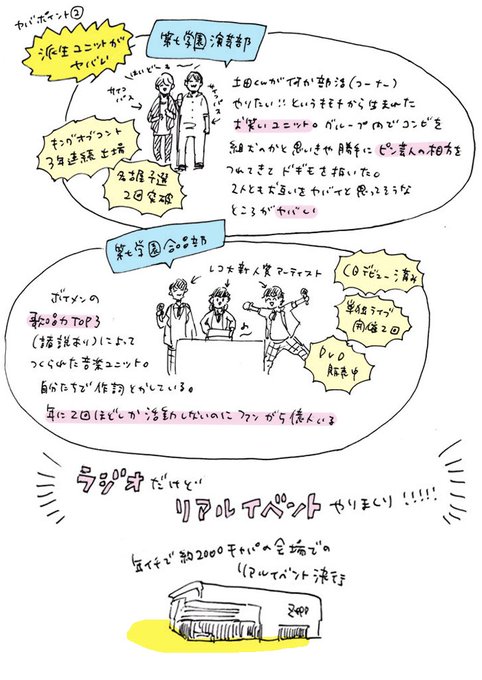 ヤバポイント②
派生ユニットが
ヤバい
第七学園演芸部
はいどーも〜
サイコ
パス
サイコパス
土田くんが何か部活(コーナー)
やりたい!!というキモチから生まれた
お笑いユニット。グループ内でコンビを
組むのかと思いきや勝手にピン芸人の相方を
つれてきてドギモを抜いた。
2人ともお互いをヤバイと思ってそうな
ところがヤバい
キングオブコント
3年連続出場
名古屋予選
2回突破
第七学園合唱部
レコ大新人賞アーティスト
ボイメンの
歌唱力TOP3
(諸説あり)によって
つくられた音楽ユニット。
自分たちで作詞とかしている。
年に2回ほどしか活動しないのにファンが5億人いる
CDデビュー済み
単独ライブ
開催2回
DVD
販売中
ラジオだけど
リアルイベントやりまくり!!!!!
年イチで約2000キャパの会場での
リアルイベント決行
Zepp